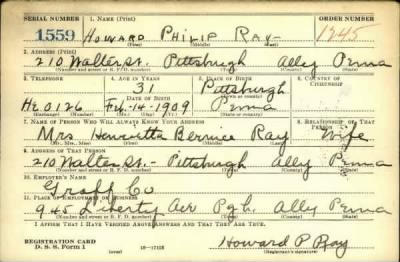 SERIAL NUMBER 1. NAME (Print) ORDER NUMBER
1559 HOWARD PHILIP RAY 1245
(First) (Middle) (Last)
2. ADDRESS (Print)
210 Walter St. Pittsburgh Ally Penna
(Number and street or R. F. D. number) (Town) (County) (State)
3. TELEPHONE 4. AGE IN YEARS 5. PLACE OF BIRTH 6. COUNTRY OF CITIZENSHIP
31 Pittsburgh
DATE OF BIRTH
HE 0126 Feb-14-1909 Penna
(Exchange) (Number) (Mo.) (Day) (Yr.) (State or country)
7. NAME OF PERSON WHO WILL ALWAYS KNOW YOUR ADDRESS 8. RELATIONSHIP OF THAT PERSON
Mrs Henrietta Bernice Ray Wife
(Mr., Mrs., Miss) (First) (Middle) (Last)
9. ADDRESS OF THAT PERSON
210 Walter St.- Pittsburgh Ally Penna
(Number and street or R. F. D. number) (Town) (County) (State)
10. EMPLOYER'S NAME
Graff Co
11. PLACE OF EMPLOYMENT OR BUSINESS
945 Liberty Ave Pgh. Ally Penna
(Number and street or R. F. D. number) (Town) (County) (State)
I AFFIRM THAT I HAVE VERIFIED ABOVE ANSWERS AND THAT THEY ARE TRUE.
REGISTRATION CARD
D. S. S. Form 1 16-17105 Howard P Ray
(Registrant's signature)